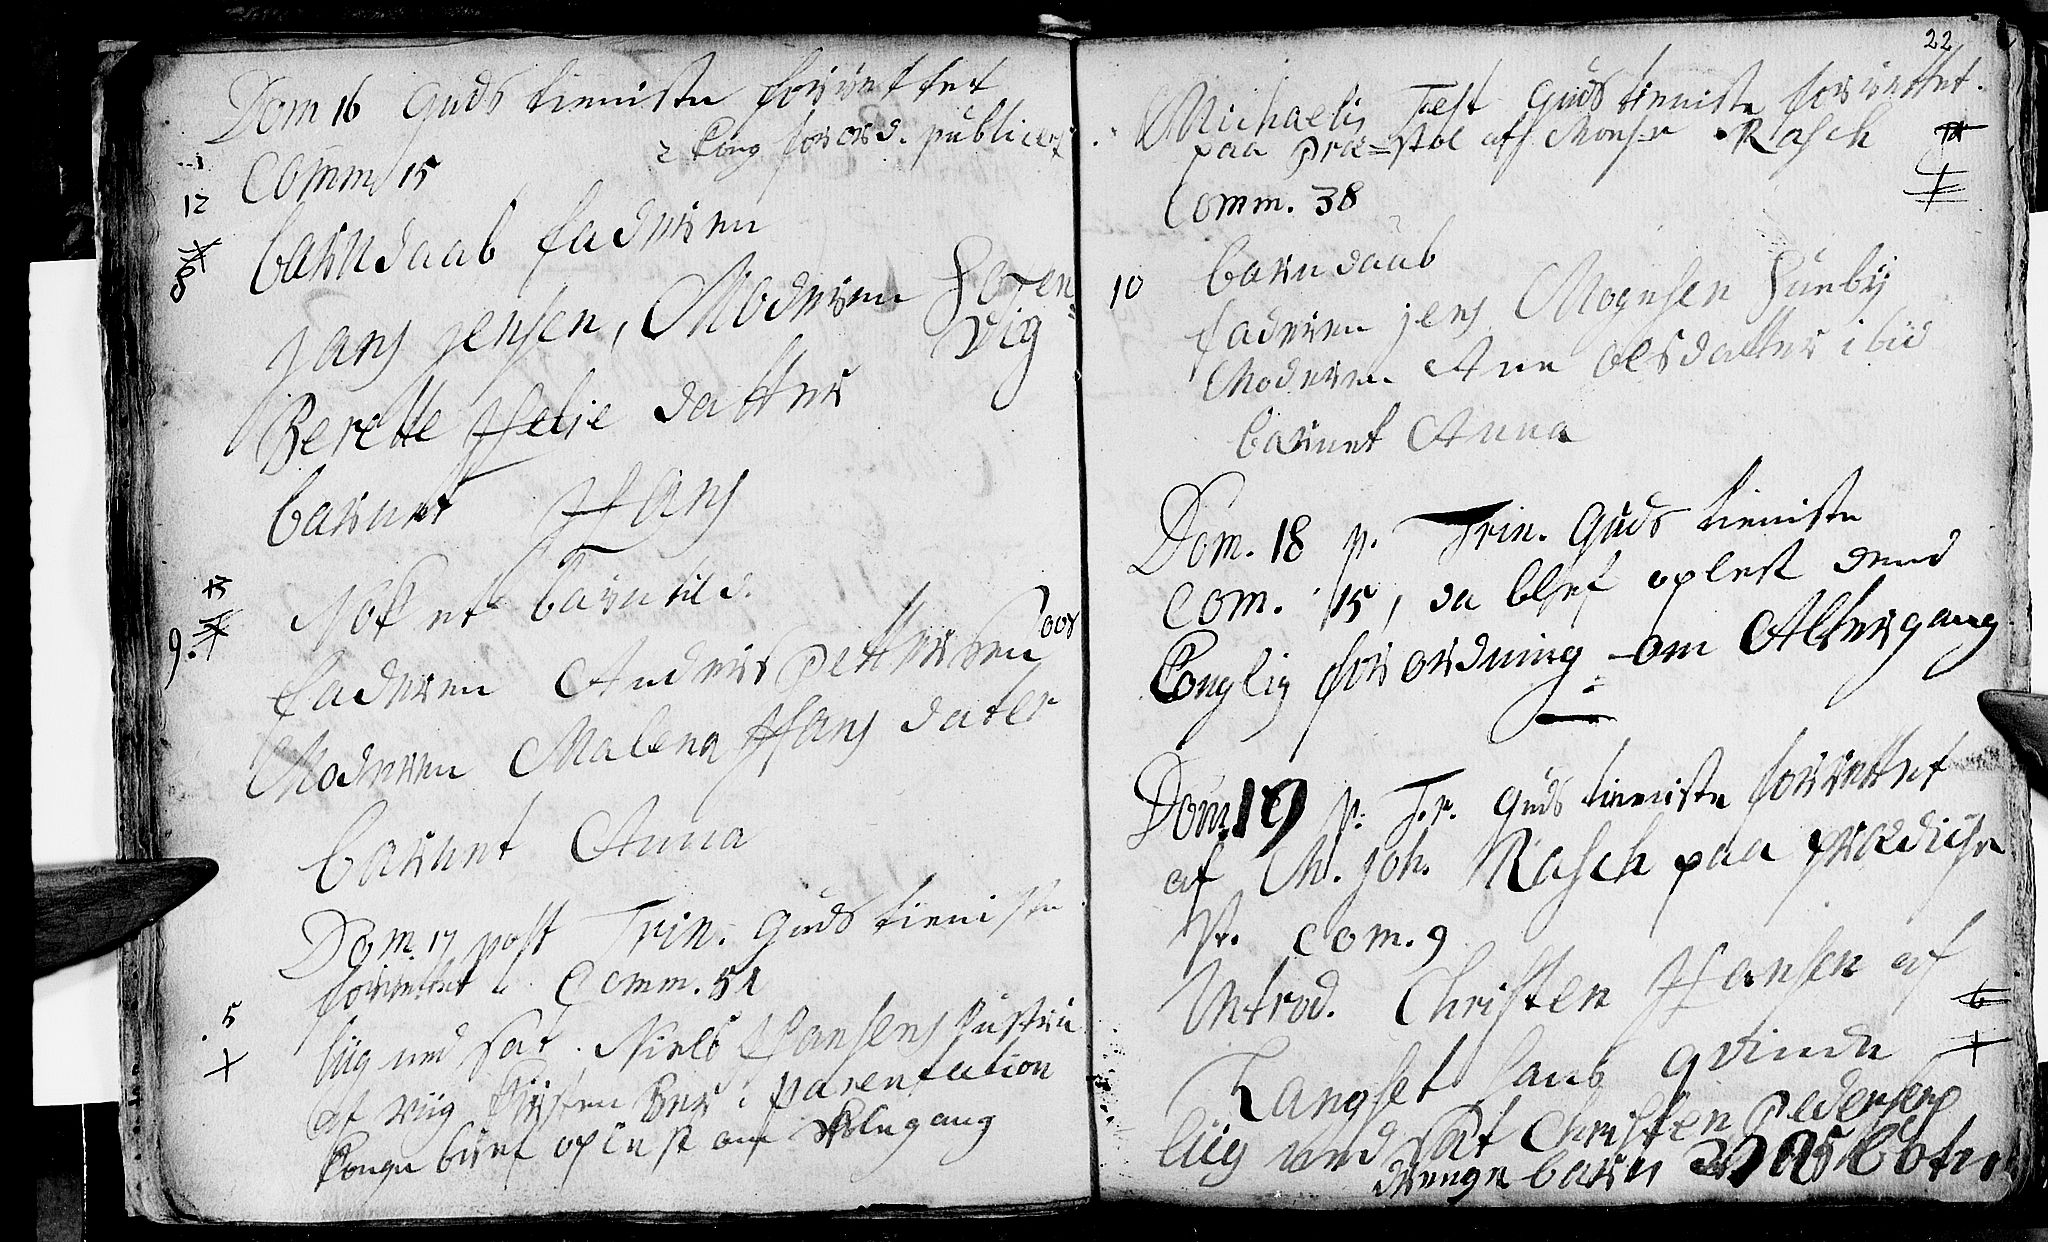 Dom 16 Guds tieniste forrettet
2 Kong forord. publicert
Comm 15
12
barndaab faderen
8
Hans Jensen, Moderen
Vig
Berette Helje datter
barnet Hans
13
Nok et barn til d.
9.
faderen Anders Pettersen
Moderen Malena Hans dater
barnet Anna
Dom. 17 post Trin. Guds tieniste
forrettet Comm. 51
5
liig ned sat. Niels Hansens Hustru
af Viig Kirsten Ber: parentation
Konge bref oplæst om Skolegang
22
Michaelis Fest Guds tieniste forrettet.
paa Præ=stol aff Monsr Rasch
Comm. 38
10
barn daab
faderen Jens Mognsen Sunbÿ
Moderen Ane Olsdatter ibid
barnet Anna
Dom. 18 p. Trin. Guds tieniste
Com. 15, da blef oplest dend
Konglig forordning om Altergang
Dom. 19 p. Tr. Guds tieniste forrettet
af M. Joh. Rasch paa prædiche
St. Com. 9
Introd. Christen Hansen af
6
Langset hans qvinde
liig ned sat Christen Pedersens
drenge barn